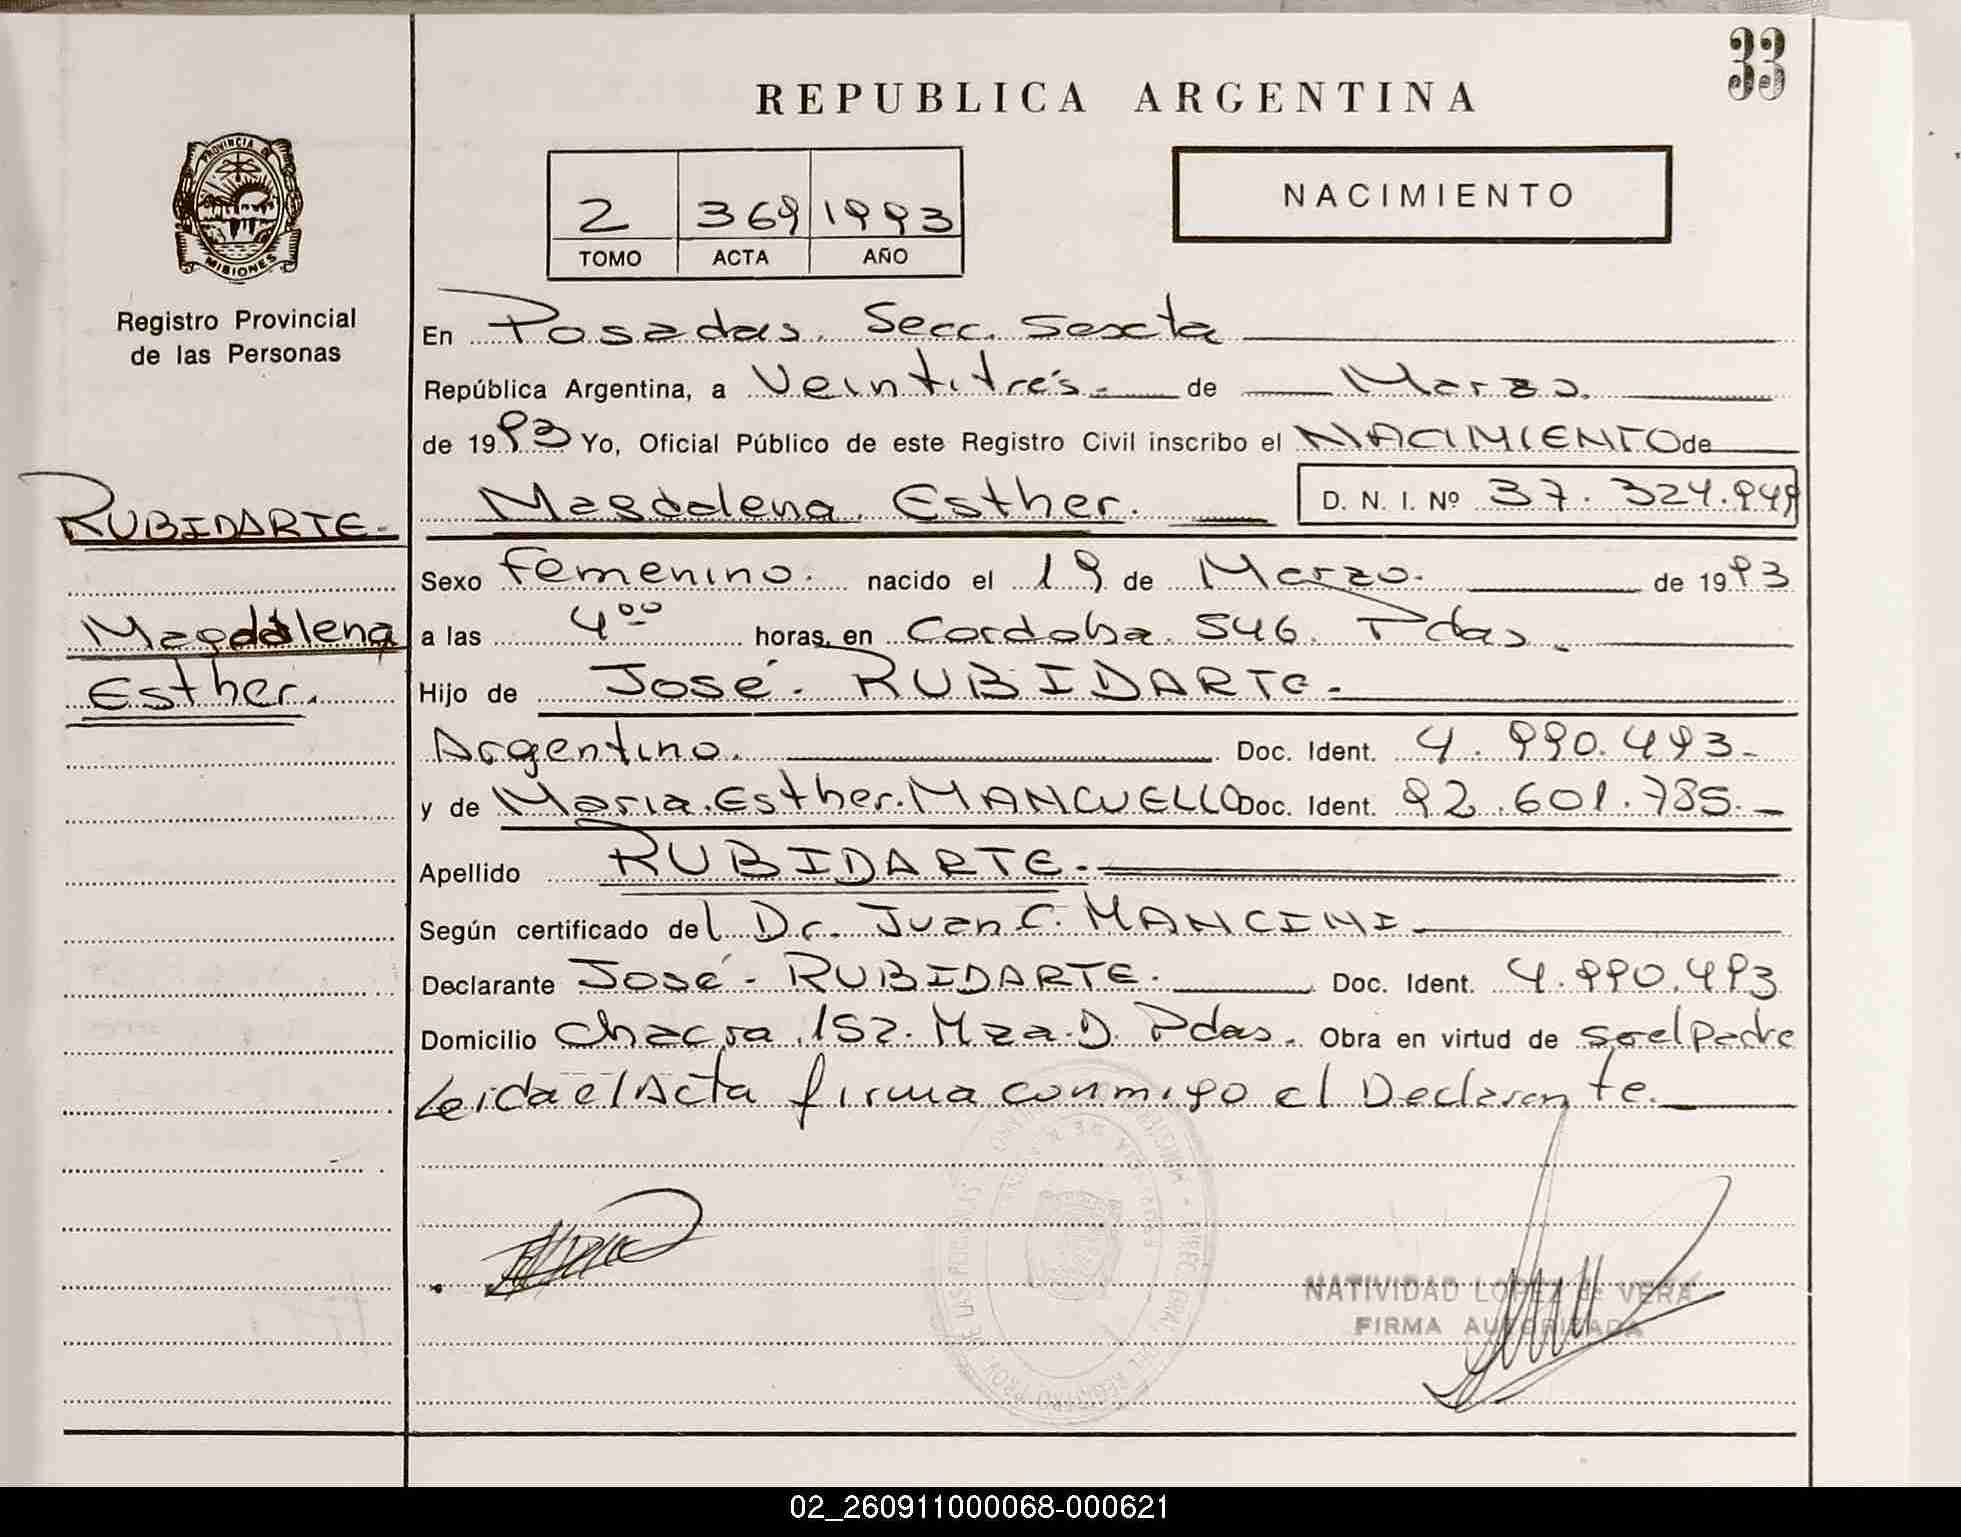 33
REPUBLICA ARGENTINA
PROVINCIA DE
MISIONES
2 369 1993
TOMO ACTA AÑO
NACIMIENTO
Registro Provincial
de las Personas
En Posadas. Secc. Sexta
República Argentina, a Veintitrés.- de Marzo.
de 1993 Yo, Oficial Público de este Registro Civil inscribo el NACIMIENTO de
RUBIDARTE.-
Magdalena Esther. D. N. I. Nº 37.324.949
Sexo femenino. nacido el 19 de Marzo. de 1993
Magdalena
Esther.
a las 4°° horas, en Cordoba. 546. Pdas.
Hijo de José. RUBIDARTE.-
Argentino. Doc. Ident. 4.990.493.-
y de Maria.Esther.MANCUELLO Doc. Ident. 92.601.785.-
Apellido RUBIDARTE.-
Según certificado del Dr. Juan C. MANCINI
Declarante José - RUBIDARTE. Doc. Ident. 4.990.493
Domicilio Chacra 152. Mza. D. Pdas. Obra en virtud de ser el padre
Leida el Acta firma conmigo el Declarante.
NATIVIDAD LOPEZ de VERA
FIRMA AUTORIZADA
02_260911000068-000621